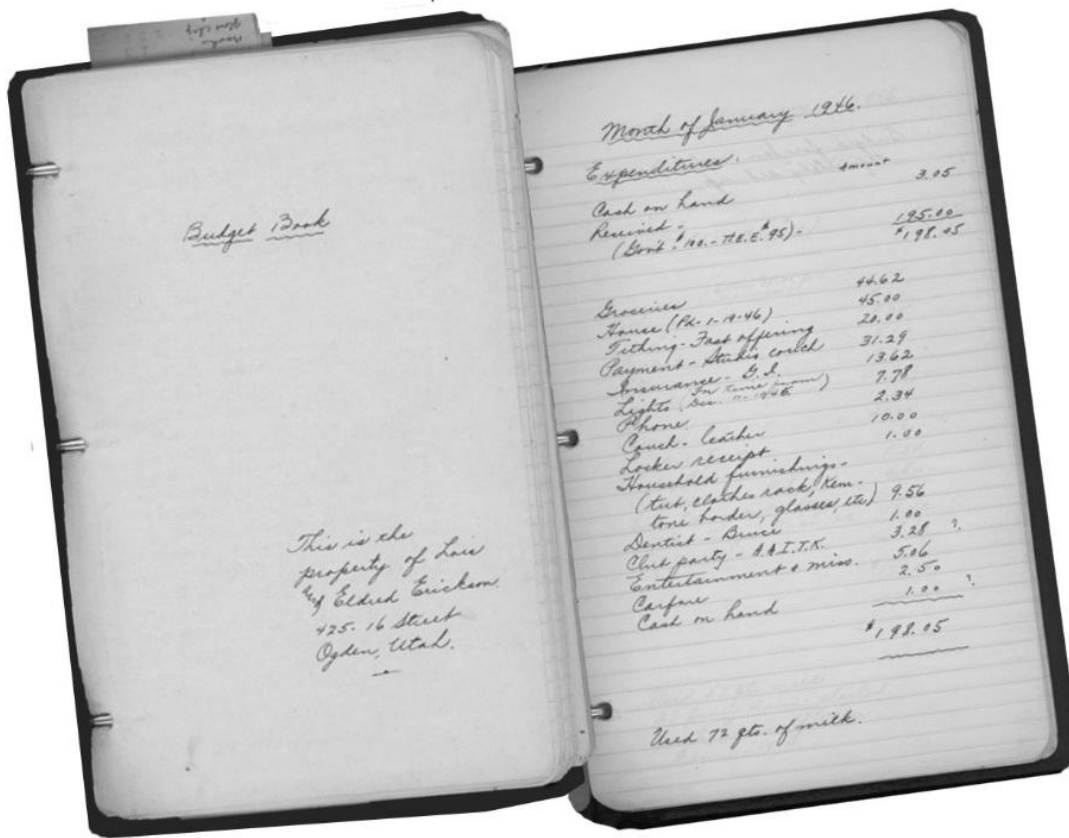 Budget Book
This is the
property of Lois
and Eldred Erickson.
425-16 Street
Ogden, Utah.
Month of January 1946.
Expenditures. Amount
Cash on hand 3.05
Received - 195.00
(Gov't - $100. - H.E.E. $95) - $198.05
Groceries 44.62
House (Pd- 1-19-46) 45.00
Tithing - Fast offering 20.00
Payment - Studio couch 31.29
Insurance - G.I. 13.62
Lights (For time from Dec. 11-1945) 7.78
Phone 2.34
Couch - leather 10.00
Locker receipt 1.00
Household furnishings -
(tub, clothes rack, Kem-
tone border, glasses, etc) 9.56
Dentist - Bruce 1.00
Club party - A.A.I.T.K. 3.28 ?
Entertainment & miss. 5.06
Carfare 2.50
Cash on hand 1.00 ?
$198.05
Used 72 qts. of milk.